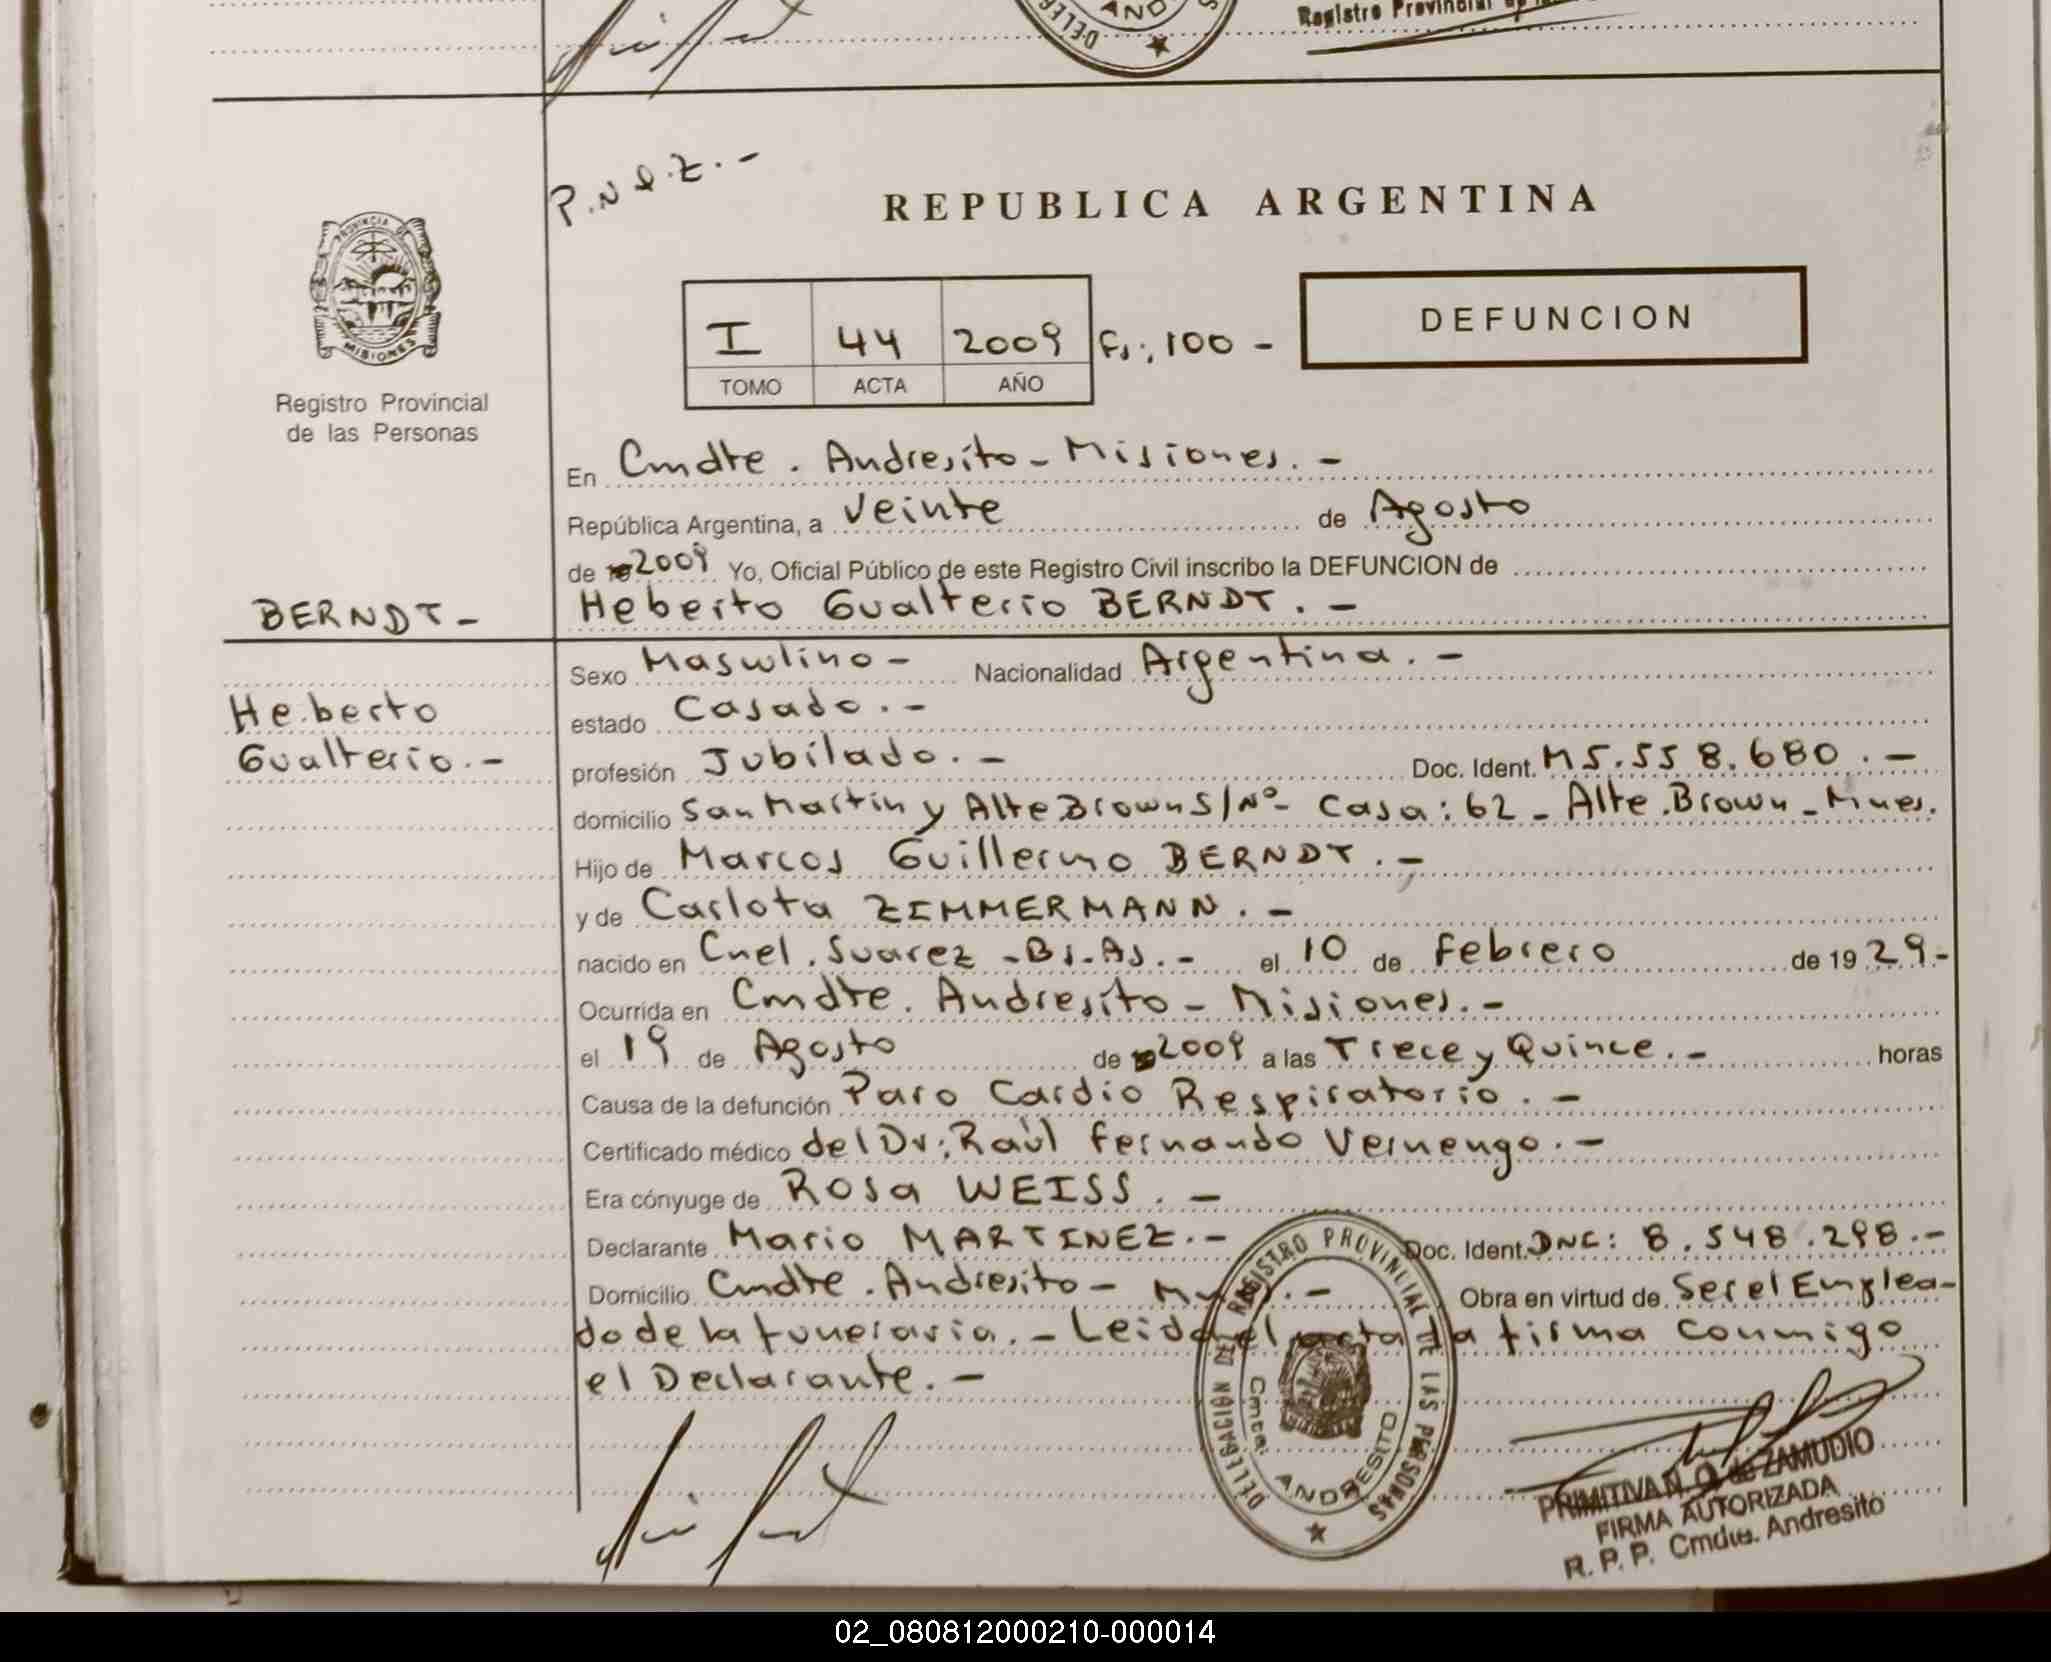 DELEG
AND
Registro Provincial de
P.N.Q.Z.-
REPUBLICA ARGENTINA
PROVINCIA DE
MISIONES
Registro Provincial
de las Personas
I 44 2009 Fs:, 100 -
TOMO ACTA AÑO
DEFUNCION
En Cmdte. Andresíto - Misiones. -
República Argentina, a veinte de Agosto
de 2009 Yo, Oficial Público de este Registro Civil inscribo la DEFUNCION de
BERNDT - Heberto Gualterio BERNDT. -
Sexo Masculino - Nacionalidad Argentina. -
Heberto estado Casado. -
Gualterio. - profesión Jubilado. - Doc. Ident. M5.558.680. -
domicilio San Martín y Alte Brown S/Nº- Casa: 62 - Alte. Brown - Mnes.
Hijo de Marcos Guillermo BERNDT. -
y de Carlota ZIMMERMANN. -
nacido en Cnel. Suarez - Bs. As. - el 10 de Febrero de 19 29.-
Ocurrida en Cmdte. Andresíto - Misiones. -
el 19 de Agosto de 2009 a las Trece y Quince. - horas
Causa de la defunción Paro Cardio Respiratorio. -
Certificado médico del Dr: Raúl Fernando Vernengo. -
Era cónyuge de Rosa WEISS. -
Declarante Mario MARTINEZ. - Doc. Ident. DNI: 8.548.298. -
Domicilio Cmdte. Andresito - . - Obra en virtud de Ser el Emplea-
do de la funeraria. - Leida el acta la firma conmigo
el Declarante. -
DELEGACIÓN DEL REGISTRO PROVINCIAL DE LAS PERSONAS
Cmte. ANDRESITO
PRIMITIVA N. O. de ZAMUDIO
FIRMA AUTORIZADA
R. P. P. Cmdte. Andresito
02_080812000210-000014